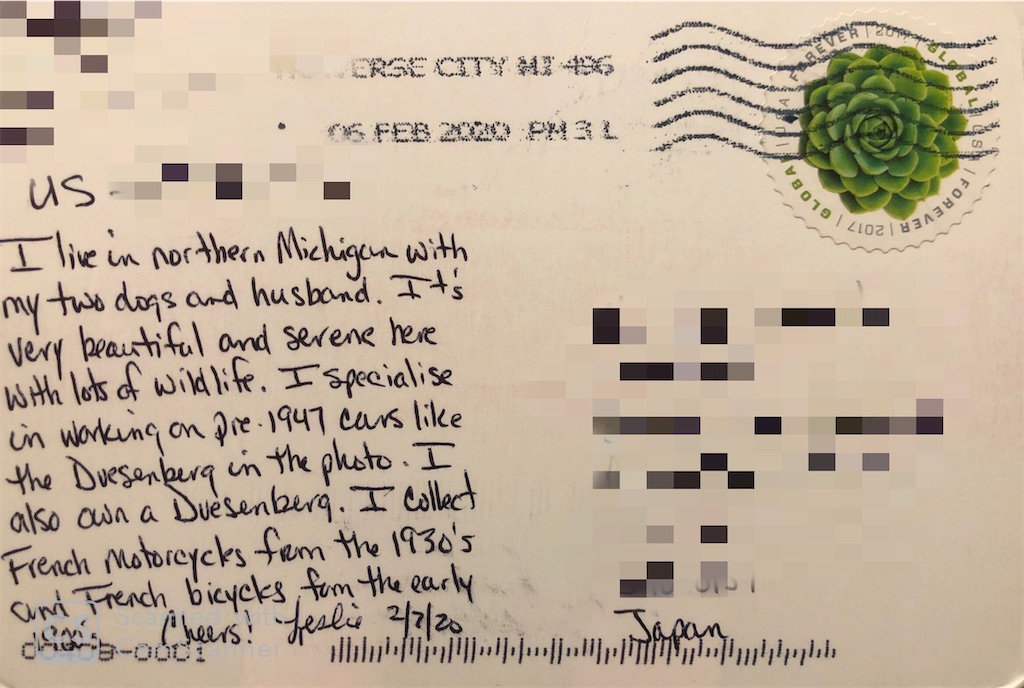 VERSE CITY MI 496
06 FEB 2020 PM 3 L
FOREVER | 2017 | GLOBAL | USA | FOREVER | 2017 | GLOBAL | USA
US -
I live in northern Michigan with
my two dogs and husband. It's
very beautiful and serene here
with lots of wildlife. I specialise
in working on pre-1947 cars like
the Duesenberg in the photo. I
also own a Duesenberg. I collect
French Motorcycles from the 1930's
and French bicycles fom the early
Cheers! Leslie 2/2/20
Japan
Scanned with
CamScanner